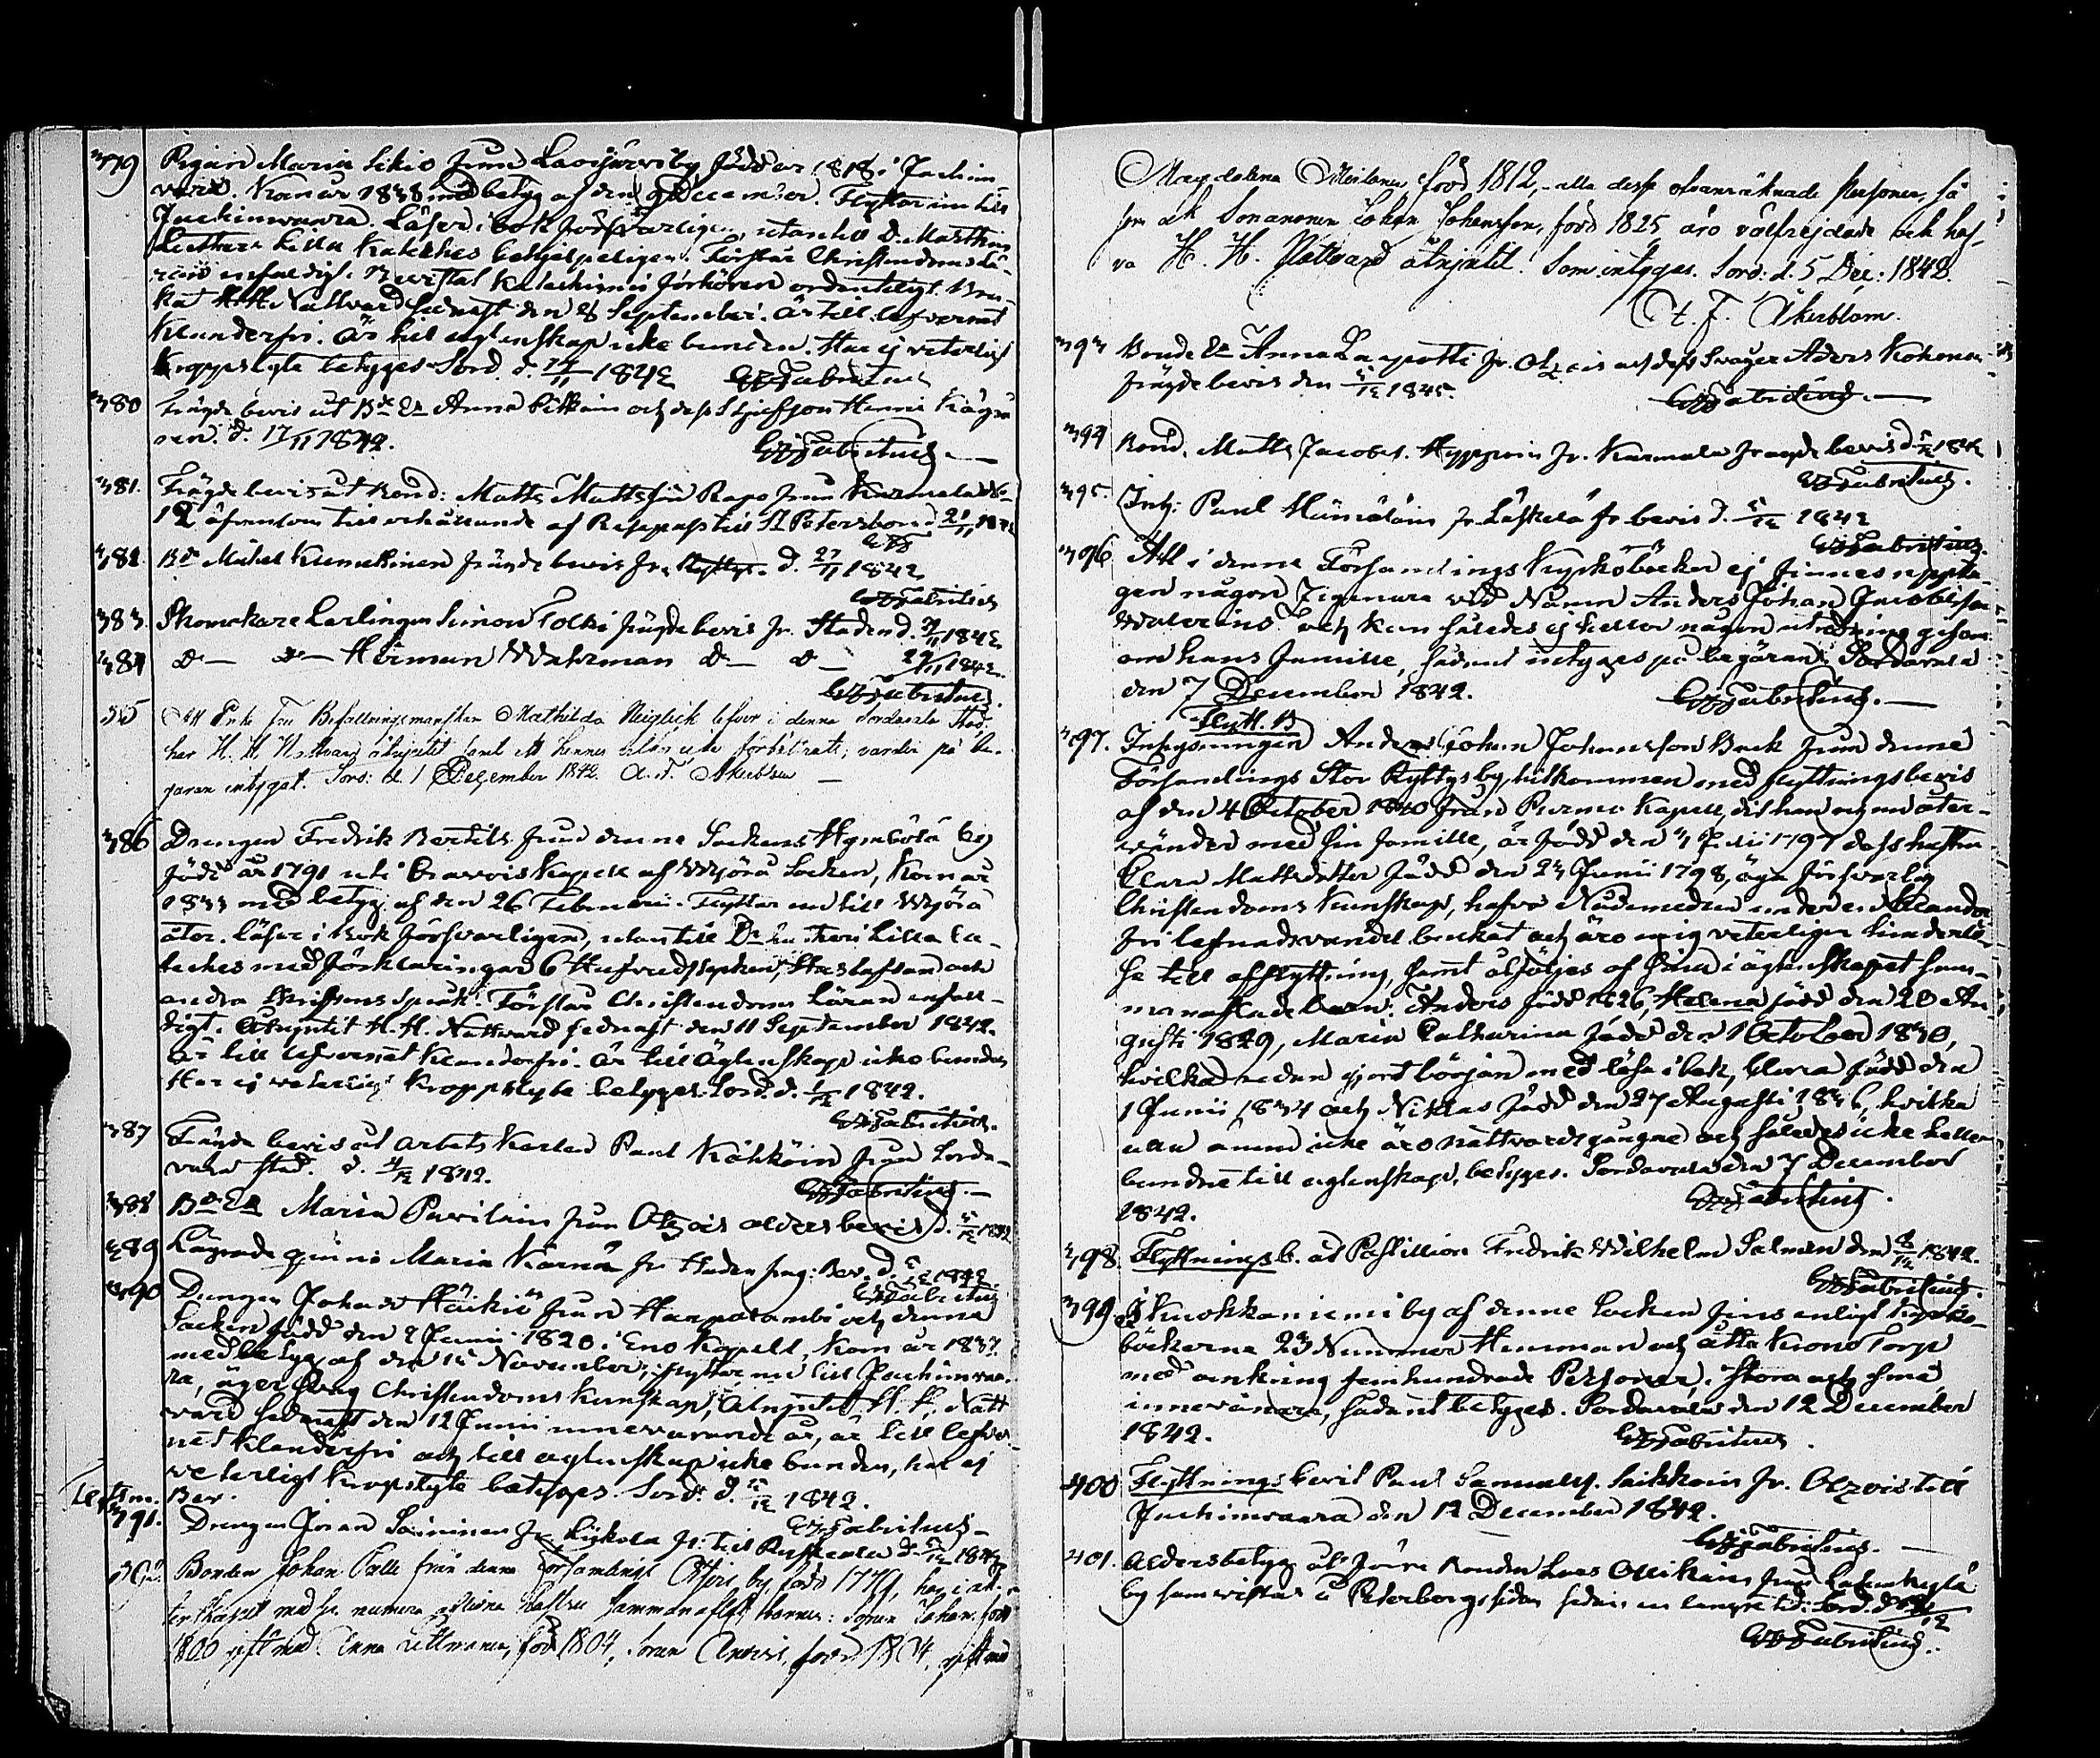 379 Pigan Maria Sikiö från Laasjärvi by född år 1818 i Jackim
vara. Kom år 1838 med betyg af den 9 December. Flyttar nu till
Jackimvaara. Läser i bok försvarligen, utantill D. Marthini
Lutheri Lilla Kateches behjelpeligen. Förstår Christendoms lä-
ran enfaldigt. Bevistat Katechismi förhören ordenteligt. Bru-
kat H.H. Nattvard sednast den 8 September. Är till lefvernet
klanderfri. Är till ägtenskap icke bunden. Har ej veterligt
kroppslyte betyges Sord. d. 14/11 1842 Fabritius
380 Frägde bevis åt Bd En Anna Pitkäin och dess Stjufson Henric
nen. d. 17/11 1842. Fabritius
381. Frägde bevis åt Bond: Matts Mattsson Rapo från Karmala No
12 äfvensom till erhållande af Respass till St Petersborg d 21/11 1842
382. Bd Mickel Kumulainen frägde bevis fr. d. 27/11 1842
Fabritius
383. Skomakare Lärlingen Simon Tolki frägde bevis fr. Staden d. 29/11 1842
384 d— d— Herman Wahrman d— d— 29/11 1842.
Fabritius
385 Att Enke Fru Befallningsmanskan Mathilda Neiglick lefver i denne Sordavala Stad,
har H. H. Nattvard åtnjutit samt att hennes vilkor icke förbättrats, varder på be-
gäran intygat. Sord: d. 1 December 1842. A. F. Åkerblom
386 Drengen Fredrik Bertils från denna Sockens Hymbölä by
född år 1791 uti Kapell af Mörå Socken, Kom år
1833 med betyg af den 26 Februarii. Flyttar nu till Mörå
åter. läser i bok försvarligen, utantill Dr Lutheri Lilla Ca-
teches med förklaringar 6 Hufvudstycken, Hustaflan och
andra Skriftens Språk. Förstår Christendoms Läran enfal-
digt. Åtnjutit H. H. Nattvard sednast den 11 September 1842.
Är till lefvernet klanderfri. Är till Ägtenskap icke bunden
Har ej veterligt kroppslyte betyges. Sord. d. 1/12 1842.
Fabritius.
387 Frägde bevis åt arbets Karlen Paul Kähköin från Sorda-
vala stad. d. 4/12 1842.
Fabritius.—
388 Bd En Maria Pavilain från Otsois åldersbevis d. 5/12 1842
389 Lägrade qvinno Maria Kärnä fr. Staden fräg: Bev. d. 5/12 1842.
Fabritius
390 Drengen Johan Häikiö från Harpalambi och denna
Socken född den 9 Junii 1820 i Eno Kapell, Kom år 1837
med betyg af den 15 November, flyttar nu till Jackimvaa-
ra, äger svag Christendoms kunskap, Åtnjutit H. H. Natt
vard sednast den 12 Junii innevarande år, är till lefver-
net klanderfri och till ägtenskap icke bunden, har ej
veterligt kroppslyte betyges. Sord. d. 5/12 1842.
Fabritius—
Bev.
391. Drengen Johan Soininen fr. Liikola fr. till Ruskeala d. 5/12 1842
392. Bonden Johan Pulli från denna församlings Otsois by, född 1779, har i äk-
tenskapet med sin numera aflidna Hustru sammanaflat barnen: sonen Johan född
1800 gift med Anna Littmanen, född 1804, sonen Anders, född 1804, gift med
Magdalena Meilanen, född 1812, – alla dessa ofvanräknade Personer, så
som ock Sonasonen Johan Johansson, född 1825 äro välfrejdade och haf-
va H. H. Nattvard åtnjutit. Som intygas. Sord: d. 5 Dec: 1842.
A. F. Åkerblom.
393 Bonde En Anna Laapotti fr. Otzois och dess Svåger Aders Kokonen
frägdebevis den 5/12 1842. Fabritius.—
394 Bond. Matts Jacobs. Hyppöin fr. Karmala frägde bevis d. 5/12 1842
Fabritius.
395. Inh: Paul Hämäläin fr. Läskelä fr. bevis d. 5/12 1842
Fabritius.
396 Att i denna Församlings Kyrkoböcker ej finnes uppta-
gen någon Zigenare vid Namn Anders Johan Jacobsson
Walerius och kan således ej heller någon utredning gifvas
om hans familie, sådant intyges på begäran. Sordavala
den 7 December 1842. Fabritius.—
Flytt. B
397. Inhysningen Anders Johan Johansson Back från denne
Församlings Stor Ryttys by, hitkommen med flyttningsbevis
af den 4 October 1840 från Purmo Kapell, dit han nu med åter-
vänder med sin familie, är född den 3 Julii 1797 dess hustru
Clara Mattsdotter född den 23 Junii 1798, äga försvarlig
Christendoms Kunskap, hafva Nådemedlen under en Klander
fri lefnadsvandel brukat och äro mig veterligen hinderlö-
sa till afflyttning, samt åtföljes af sina i ägtenskapet sam-
manaflade barn: Anders född 1826, Helena född den 20 Au-
gusti 1829, Maria Catharina född den 1 October 1830,
hvilka redan gjort början med läsa i bok, Clara född den
1 Junii 1834 och Niklas född den 27 Augusti 1836, hvilka
alla ännu icke äro nattvardsgångne och således icke heller
bundne till ägtenskap, betyges. Sordavala den 7 December
1842. Fabritius.
398. Flyttnings b. åt Postillion Fredrik Wilhelm Salmén den 8/12 1842.
Fabritius.
399. I Huokkaniemi by af denne Socken fins enligt kyrko-
böckerna 23 Nummer Hemman och åtta Krono Torp
med omkring femhundrade Personer, Stora och små
innevånare, sådant betyges. Sordavala den 12 December
1842. Fabritius.
400 Flyttnings bevis Paul Samuelss. Laikkoin fr. Otzois till
Jackimvaara den 12 December 1842.
Fabritius.—
401. Åldersbetyg åt förre Bonden Lars Ollikain från
by som vistas å Petersborgs sidan sedan en längre tid. Sord. d.
Fabritius.